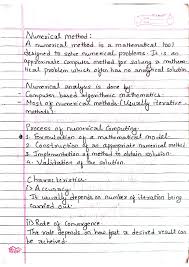 Numerical method:
A numerical method is a mathematical tool
designed to solve numerical problems. It is an
approximate computer method for solving a mathema-
tical problem which often has no analytical solution.
Numerical analysis is done by:
Computer based algorithmic mathematics.
Most of numerical methods (Usually iterative
methods)
Process of Numerical Computing:
1. Formulation of a mathematical model
2. Construction of an appropriate numerical method
3. Implementation of method to obtain solution
4. Validation of the solution.
Characteristics:
1) Accuracy
It usually depends on number of iteration being
carried out.
2) Rate of Convergence
The rate depends on how fast a desired result can
be achieved.